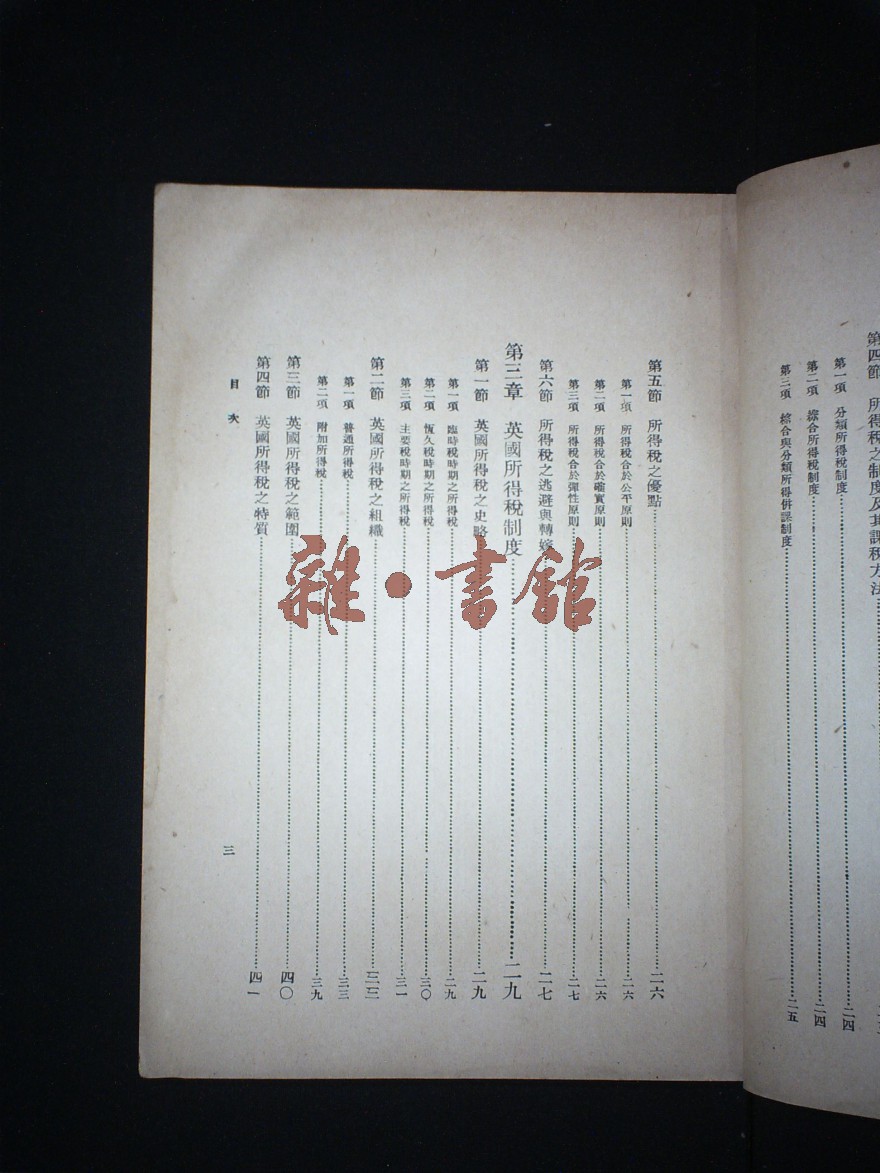 第四節　所得稅之制度及其課稅方法
第一項　分類所得稅制度……二四
第二項　綜合所得稅制度……二四
第三項　綜合與分類所得併課制度……二五
第五節　所得稅之優點……二六
第一項　所得稅合於公平原則……二六
第二項　所得稅合於確實原則……二六
第三項　所得稅合於彈性原則……二七
第六節　所得稅之逃避與轉嫁……二七
第三章　英國所得稅制度……二九
第一節　英國所得稅之史略……二九
第一項　臨時稅時期之所得稅……二九
第二項　恆久稅時期之所得稅……三〇
第三項　主要稅時期之所得稅……三一
第二節　英國所得稅之組織……三三
第一項　普通所得稅……三三
第二項　附加所得稅……三九
第三節　英國所得稅之範圍……四〇
第四節　英國所得稅之特質……四一
目次
三
雜·書館